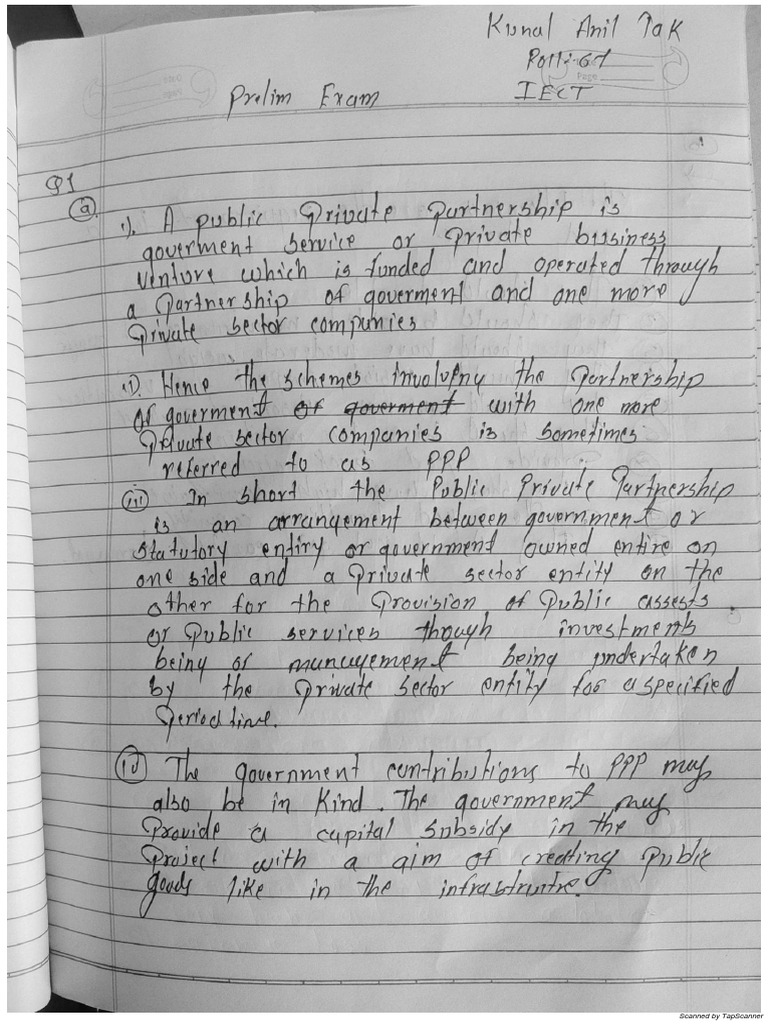 Kunal Anil Tak
Roll:-61
Page
Prelim Exam
IECT
Q1
(a) i). A public Private Partnership is
goverment service or Private bussiness
venture which is funded and operated through
a Partnership of goverment and one more
Private sector companies
ii). Hence the schemes involving the Partnership
of goverment of goverment with one more
Private sector companies is sometimes
referred to as PPP
(iii) In short the Public Private Partnership
is an arrangement between government or
statutory entiry or government owned entire on
one side and a Private sector entity on the
other for the Provision of Public assests
or Public services though investments
being or management being undertaken
by the Private sector entity for a specified
Period time.
(iv) The government contributions to PPP may
also be in Kind. The government may
Provide a capital subsidy in the
Project with a aim of creating Public
goods like in the infrastruntre.
Scanned by TapScanner